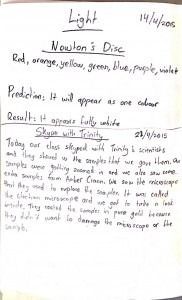 Light
14/4/2015
Newton's Disc
Red, orange, yellow, green, blue, purple, violet
Prediction: It will appear as one colour
Result: It appears fully white
Skype with Trinity
Today our class skyped with Trinity's scientists
and they showed us the samples that we gave them. Our
samples were getting zoomed in and we also saw some
extra samples from Amber Cronin. We saw the microscope
that they used to explore the samples. It was called
the electron microscope and we got to take a look
inside. They coated the samples in pure gold because
they didn't want to damage the microscope or the
sample.